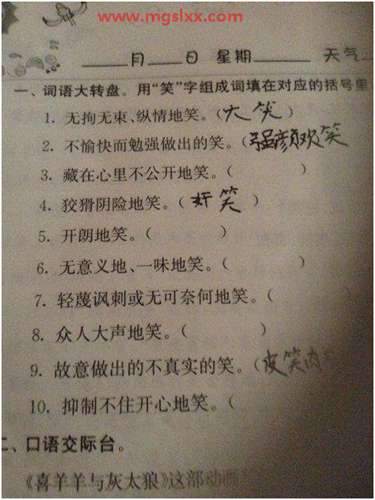 www.mgslxx.com
月 日 星期 天气
一、词语大转盘。用“笑”字组成词填在对应的括号里
1. 无拘无束、纵情地笑。(大笑)
2. 不愉快而勉强做出的笑。(强颜欢笑
3. 藏在心里不公开地笑。( )
4. 狡猾阴险地笑。(奸笑)
5. 开朗地笑。( )
6. 无意义地、一味地笑。( )
7. 轻蔑讽刺或无可奈何地笑。( )
8. 众人大声地笑。( )
9. 故意做出的不真实的笑。(皮笑肉
10. 抑制不住开心地笑。(
二、口语交际台。
《喜羊羊与灰太狼》这部动画